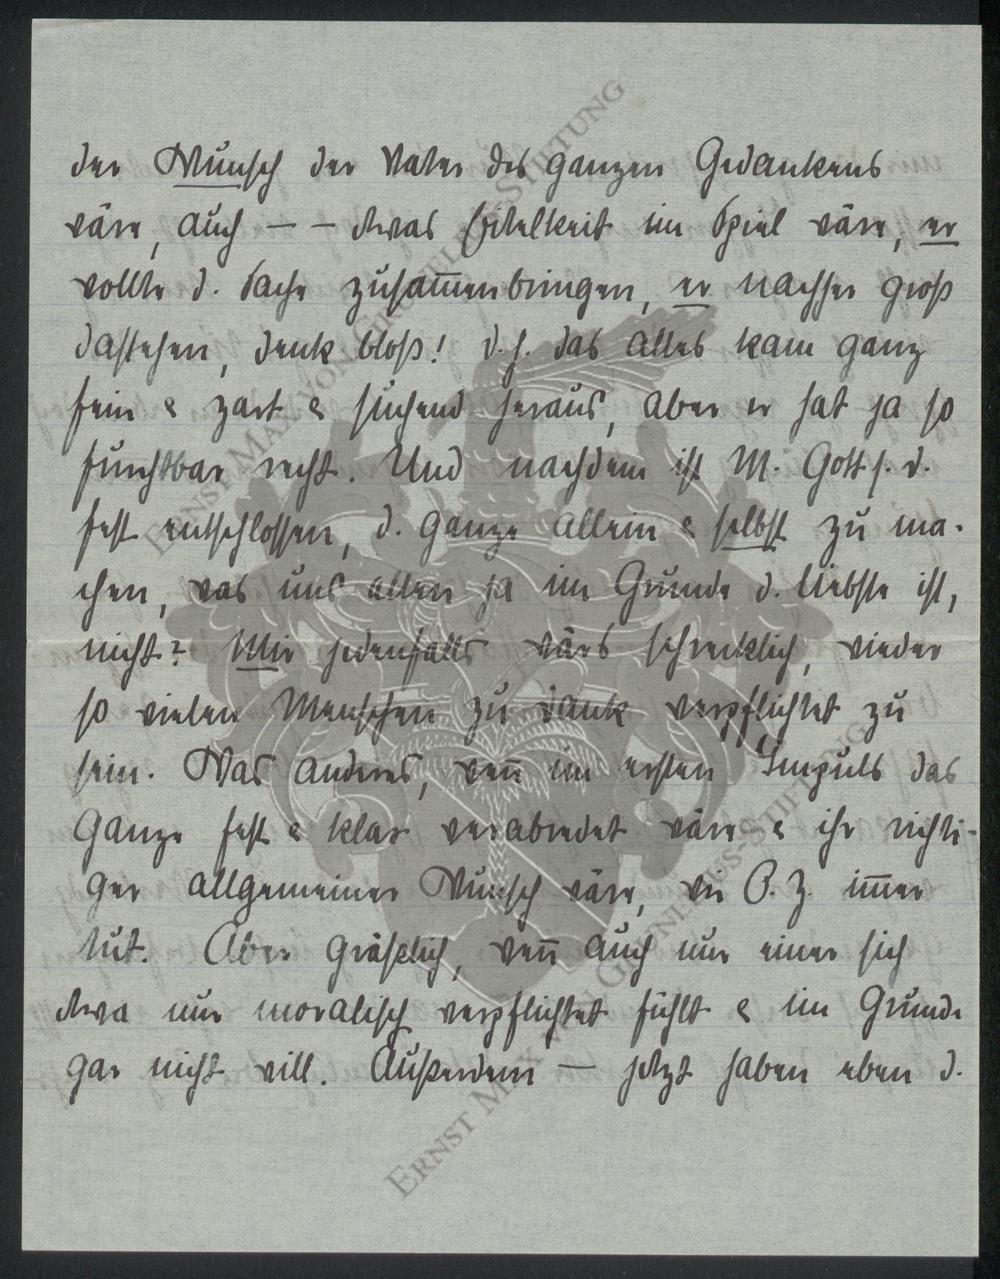 der Wunsch der Vater des ganzen Gedankens
wäre, auch – – etwas Eitelkeit im Spiel wäre, er
wollte d. Sache zusam̅enbringen, er nachher groß
dastehen, denk bloß! d. h. das alles kam ganz
fein & zart & suchend heraus, aber er hat ja so
furchtbar recht. Und nachdem ist M. Gott s. d.
fest entschlossen, d. ganze allein & selbst zu ma-
chen, was uns allen ja im Grunde d. liebste ist,
nicht? Mir jedenfalls wärs schrecklich, wieder
so vielen Menschen zu Dank verpflichtet zu
sein. Was anderes, wen̅ im ersten Impuls das
Ganze fest & klar verabredet wäre & ihr richti-
ger allgemeiner Wunsch wäre, wie P. Z. im̅er
tut. Aber gräßlich, wen̅ auch nur einer sich
etwa nur moralisch verpflichtet fühlt & im Grunde
gar nicht will. Außerdem – jetzt haben eben d.
Ernst Max von Grunelius-Stiftung
Ernst Max von Grunelius-Stiftung